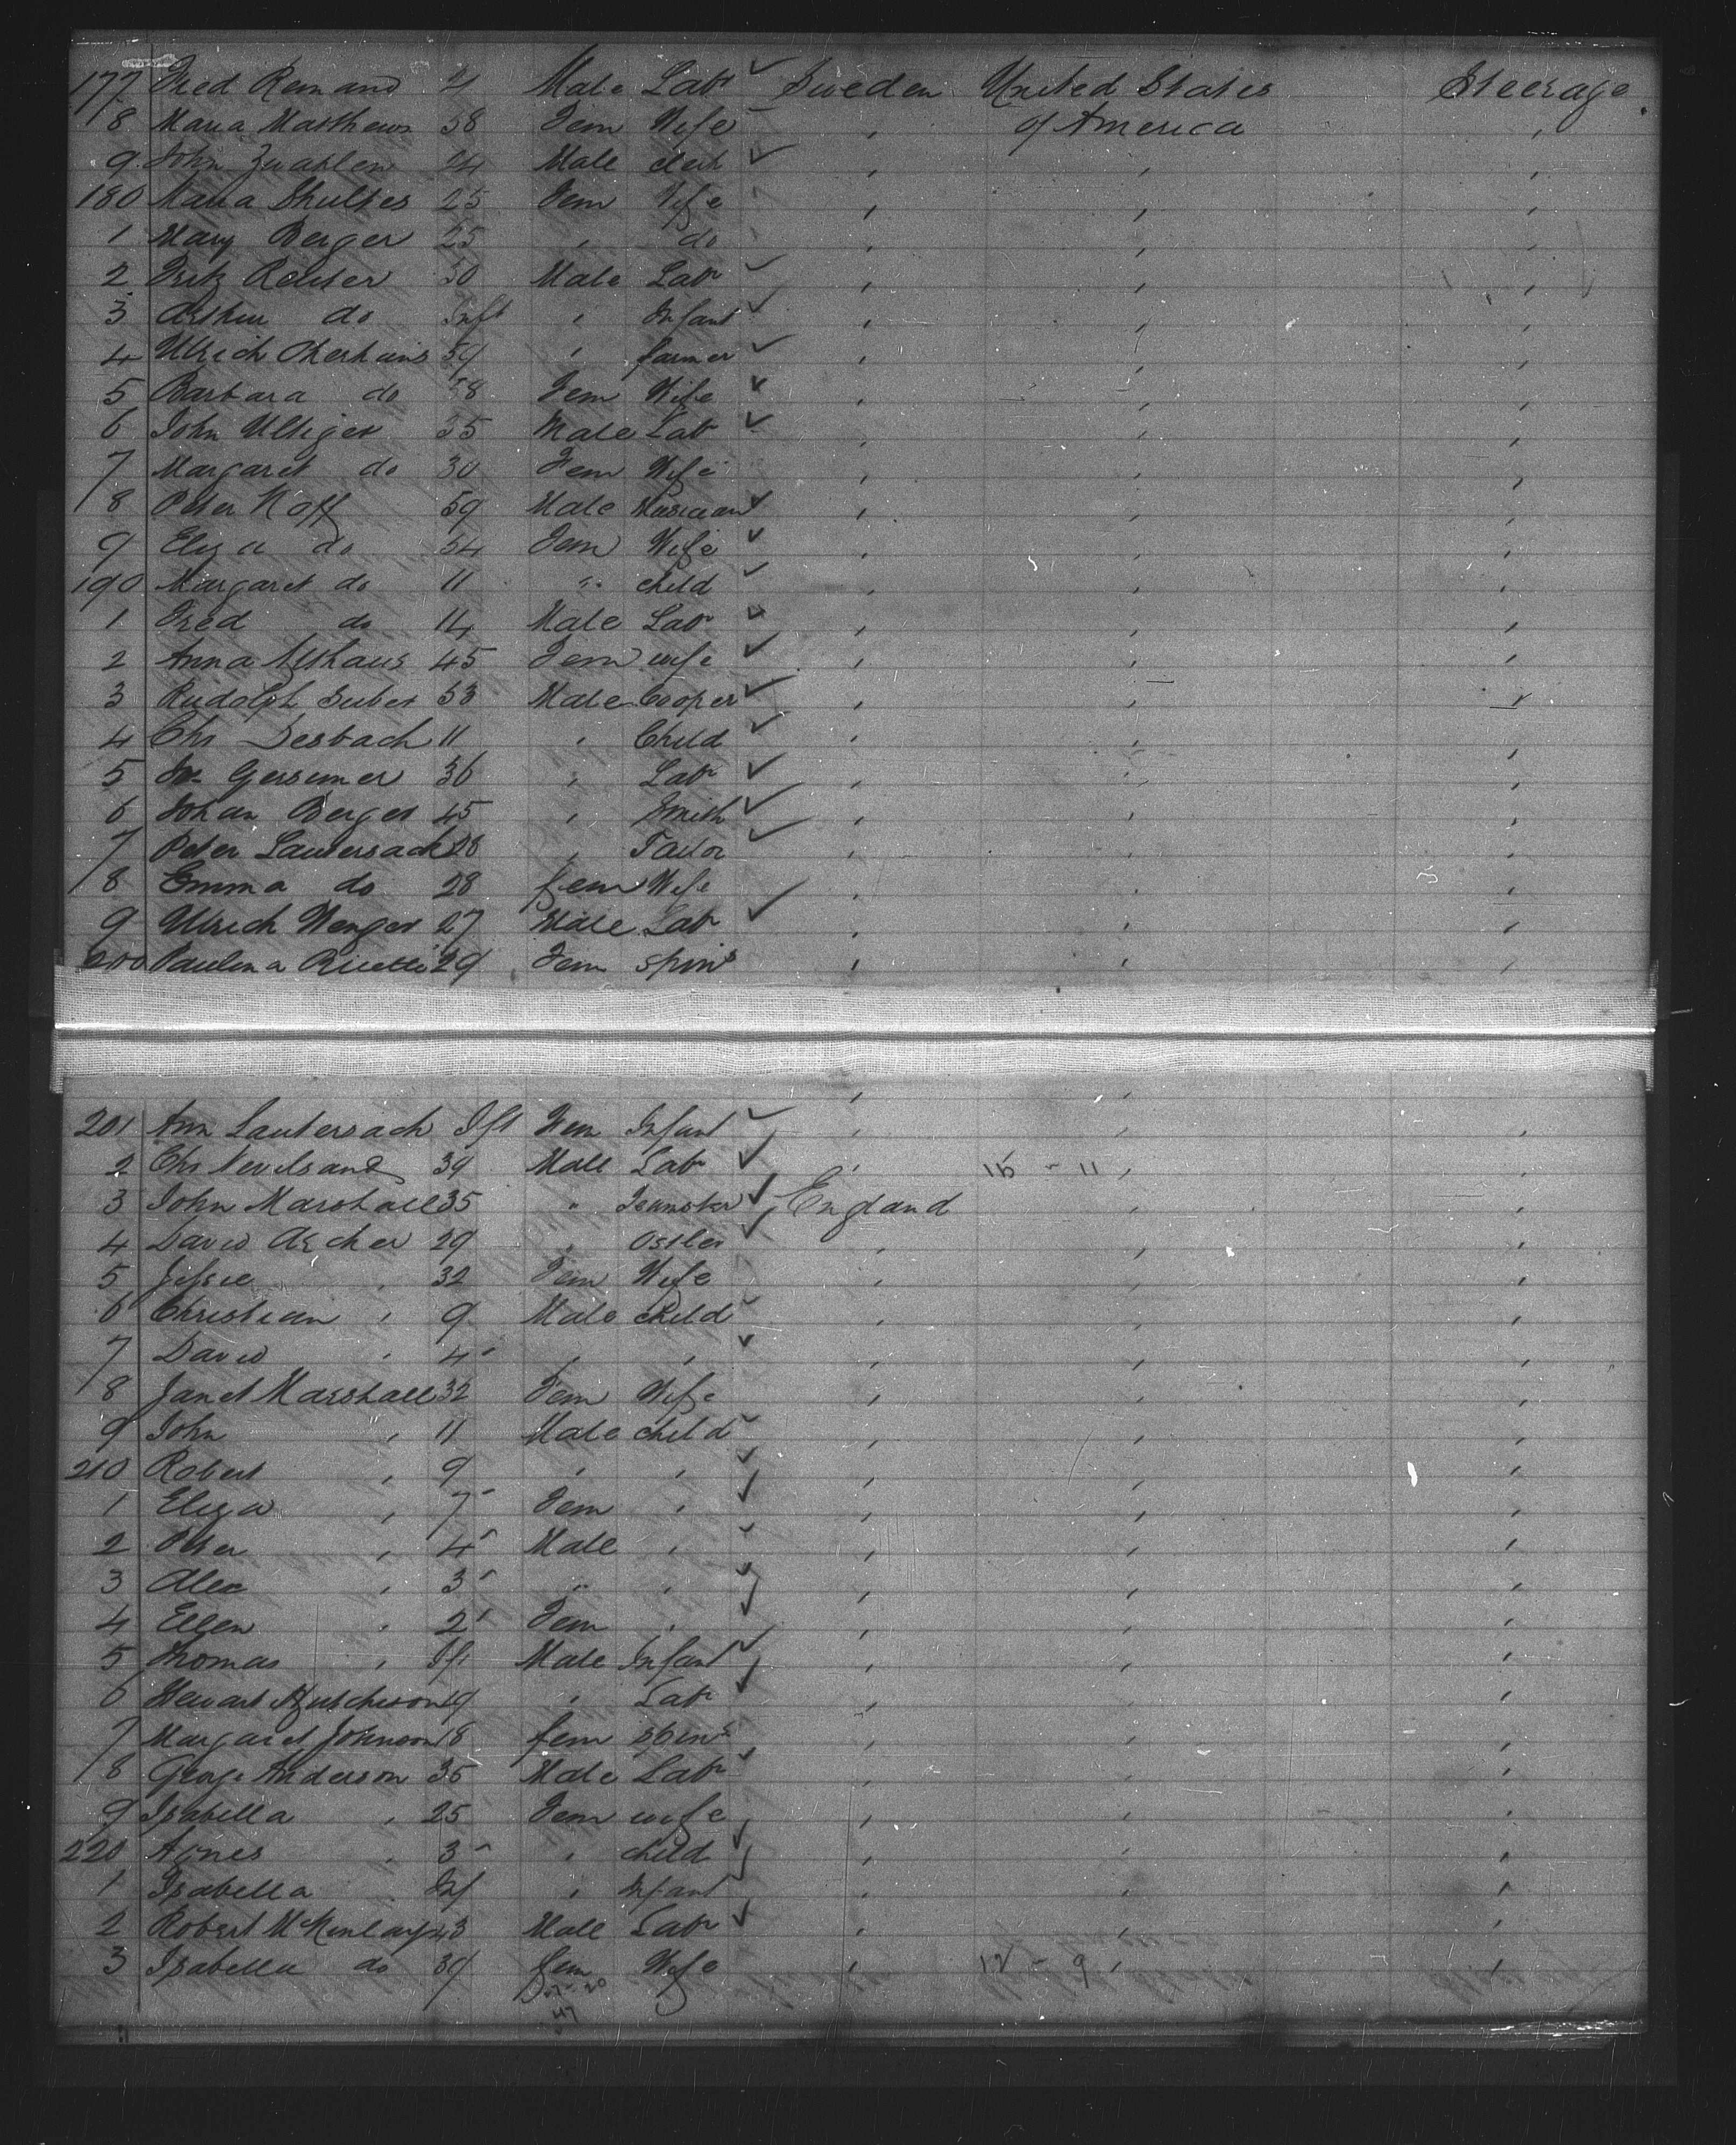 177 Fred Remand 21 Male Labr Sweden United States Steerage
8 Maria Matthews 58 Fem Wife , of America ,
9 John 24 Male clerk , , ,
180 Maria Shultes 25 Fem Wife , , ,
1 Mary Berger 25 , do , , ,
2 Fritz Reuser 30 Male Labr , , ,
3 Arthur do Inft , Infant , , ,
4 Ulrich 59 , farmer , , ,
5 Barbara do 58 Fem Wife , , ,
6 John Ultiger 35 Male Labr , , ,
7 Margaret do 30 Fem Wife , , ,
8 Peter Naff 59 Male Musician , , ,
9 Eliza do 54 Fem Wife , , ,
190 Margaret do 11 " child , , ,
1 Fred do 14 Male Labr , , ,
2 Anna Althaus 45 Fem wife , , ,
3 Rudolph Suber 53 Male Cooper , , ,
4 Chr Desbach 11 , Child , , ,
5 Gersimer 36 , Labr , , ,
6 Johan Berger 45 , Smith , , ,
7 Peter Lautersack 28 , Tailor , , ,
8 Emma do 28 fem Wife , , ,
9 Ulrich Wenger 27 Male Labr , , ,
200 Paulina Ricetti 29 Fem spinr , , ,
201 Ann Lautersach Ift Fem Infant , , ,
2 Chr Nevelsand 39 Male Labr , 15 - 11 , ,
3 John Marshall 35 " Teamster England , ,
4 David Archer 29 , Ostler , , ,
5 Jessie , 32 Fem Wife , , ,
6 Christian , 9 Male child , , ,
7 David , 4 , , , , ,
8 Janet Marshall 32 Fem Wife , , ,
9 John , 11 Male child , , ,
210 Robert , 9 , , , , ,
1 Eliza , 7 Fem , , , ,
2 Peter , 4 Male , , , ,
3 Alex , 3 " , , , ,
4 Ellen , 2 Fem , , , ,
5 Thomas , Ift Male Infant , , ,
6 Stewart Hutcheson 19 , Labr , , ,
7 Margaret Johnson 18 fem spinr , , ,
8 George Anderson 35 Male Labr , , ,
9 Isabella , 25 Fem wife , , ,
220 Agnes , 3 , child , , ,
1 Isabella , Inf , Infant , , ,
2 Robert McKinlay 43 Male Labr , , ,
3 Isabella do 39 fem Wife , 12 - 9 , ,
27 - 20
47